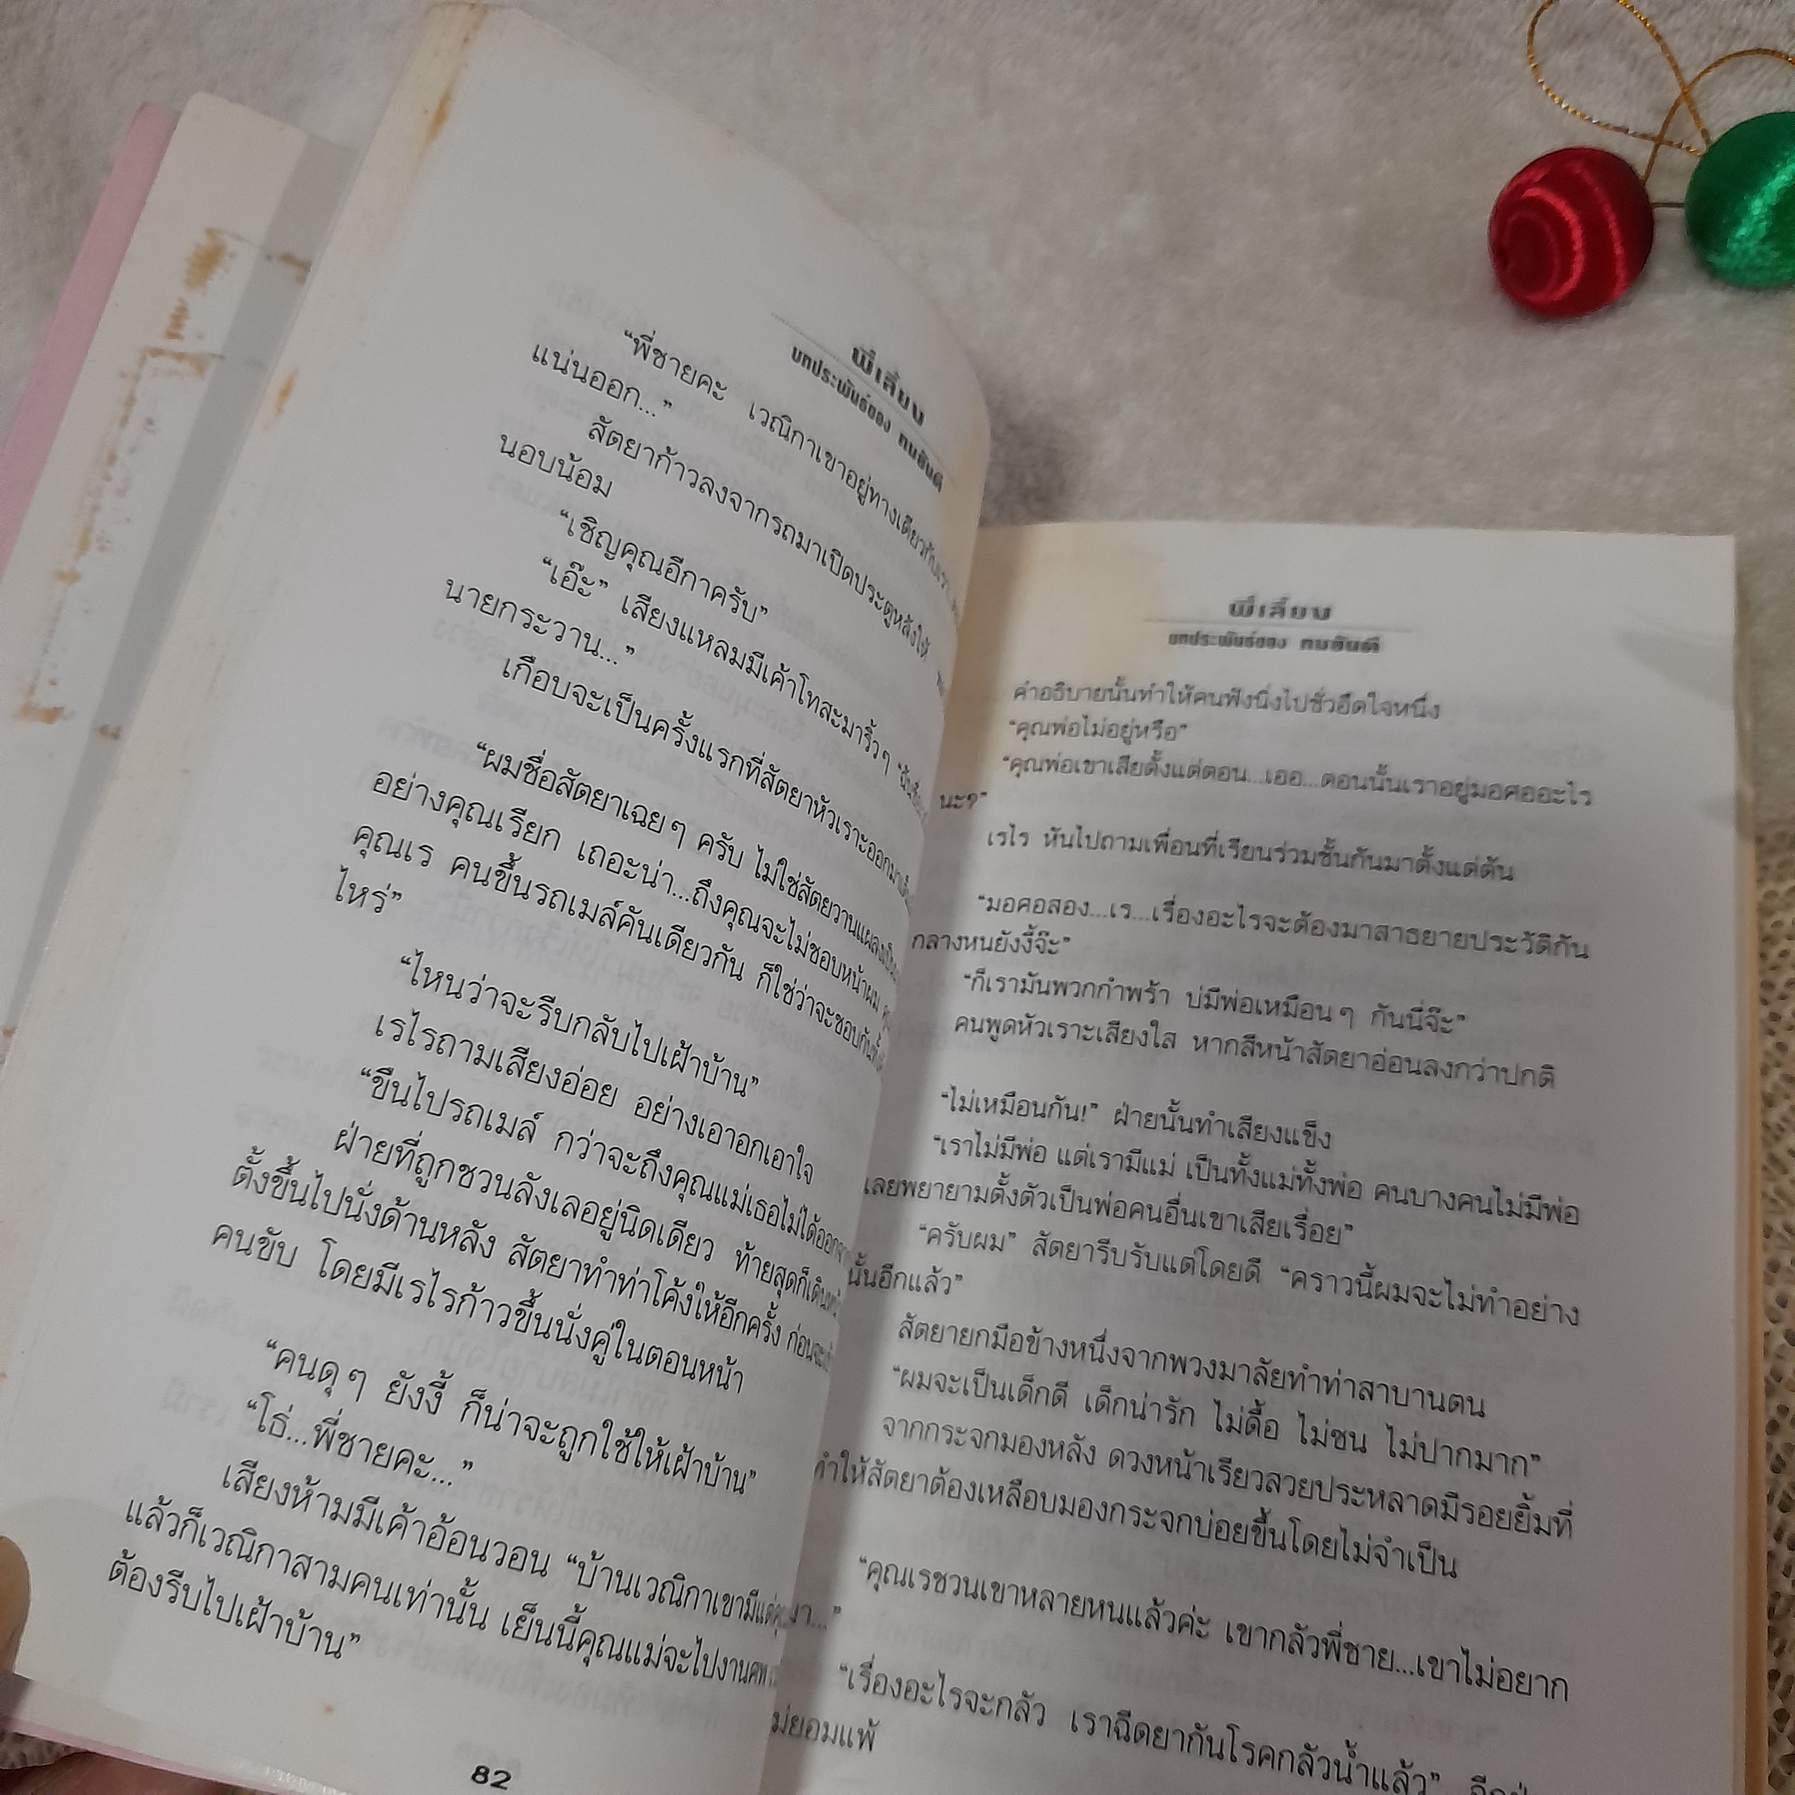 พี่เลี้ยง
บทประพันธ์ของ กนธันดี
“พี่ชายคะ เวณิกาเขาอยู่ทางเดียวกับเรา
แน่นออก...”
สัตยาก้าวลงจากรถมาเปิดประตูหลังให้
นอบน้อม
“เชิญคุณอีกาครับ”
“เอ๊ะ” เสียงแหลมมีเค้าโทสะมาริ้วๆ
นายกระวาน...”
เกือบจะเป็นครั้งแรกที่สัตยาหัวเราะออกมา
“ผมชื่อสัตยาเฉยๆ ครับ ไม่ใช่สัตยวาน
อย่างคุณเรียก เถอะน่า...ถึงคุณจะไม่ชอบหน้าผม
คุณเร คนขึ้นรถเมล์คันเดียวกัน ก็ใช่ว่าจะชอบกัน
ไหร่”
“ไหนว่าจะรีบกลับไปเฝ้าบ้าน”
เรไรถามเสียงอ่อย อย่างเอาอกเอาใจ
“ขืนไปรถเมล์ กว่าจะถึงคุณแม่เธอไม่ได้ออก
ฝ่ายที่ถูกชวนลังเลอยู่นิดเดียว ท้ายสุดก็เดิน
ตั้งขึ้นไปนั่งด้านหลัง สัตยาทำท่าโค้งให้อีกครั้ง
คนขับ โดยมีเรไรก้าวขึ้นนั่งคู่ในตอนหน้า
“คนดุๆ ยังงี้ ก็น่าจะถูกใช้ให้เฝ้าบ้าน”
“โธ่...พี่ชายคะ...”
เสียงห้ามมีเค้าอ้อนวอน “บ้านเวณิกาเขามีแต่
แล้วก็เวณิกาสามคนเท่านั้น เย็นนี้คุณแม่จะไปงานศพ
ต้องรีบไปเฝ้าบ้าน”
82
พี่เลี้ยง
บทประพันธ์ของ กนธันดี
คำอธิบายนั้นทำให้คนฟังนิ่งไปชั่วอึดใจหนึ่ง
“คุณพ่อไม่อยู่หรือ”
“คุณพ่อเขาเสียตั้งแต่ตอน...เออ...ตอนนั้นเราอยู่มอศออะไร
นะ?”
เรไร หันไปถามเพื่อนที่เรียนร่วมชั้นกันมาตั้งแต่ต้น
“มอศอสอง...เร...เรื่องอะไรจะต้องมาสาธยายประวัติกัน
กลางหนยังงี้จ๊ะ”
“ก็เรามันพวกกำพร้า บ่มีพ่อเหมือนๆ กันนี่จ๊ะ”
คนพูดหัวเราะเสียงใส หากสีหน้าสัตยาอ่อนลงกว่าปกติ
“ไม่เหมือนกัน!” ฝ่ายนั้นทำเสียงแข็ง
“เราไม่มีพ่อ แต่เรามีแม่ เป็นทั้งแม่ทั้งพ่อ คนบางคนไม่มีพ่อ
เลยพยายามตั้งตัวเป็นพ่อคนอื่นเขาเสียเรื่อย”
“ครับผม” สัตยารีบรับแต่โดยดี “คราวนี้ผมจะไม่ทำอย่าง
นั้นอีกแล้ว”
สัตยายกมือข้างหนึ่งจากพวงมาลัยทำท่าสาบานตน
“ผมจะเป็นเด็กดี เด็กน่ารัก ไม่ดื้อ ไม่ซน ไม่ปากมาก”
จากกระจกมองหลัง ดวงหน้าเรียวสวยประหลาดมีรอยยิ้มที่
ทำให้สัตยาต้องเหลือบมองกระจกบ่อยขึ้นโดยไม่จำเป็น
“คุณเรชวนเขาหลายหนแล้วค่ะ เขากลัวพี่ชาย...เขาไม่อยาก
มา...”
“เรื่องอะไรจะกลัว เราฉีดยากันโรคกลัวน้ำแล้ว”
ไม่ยอมแพ้